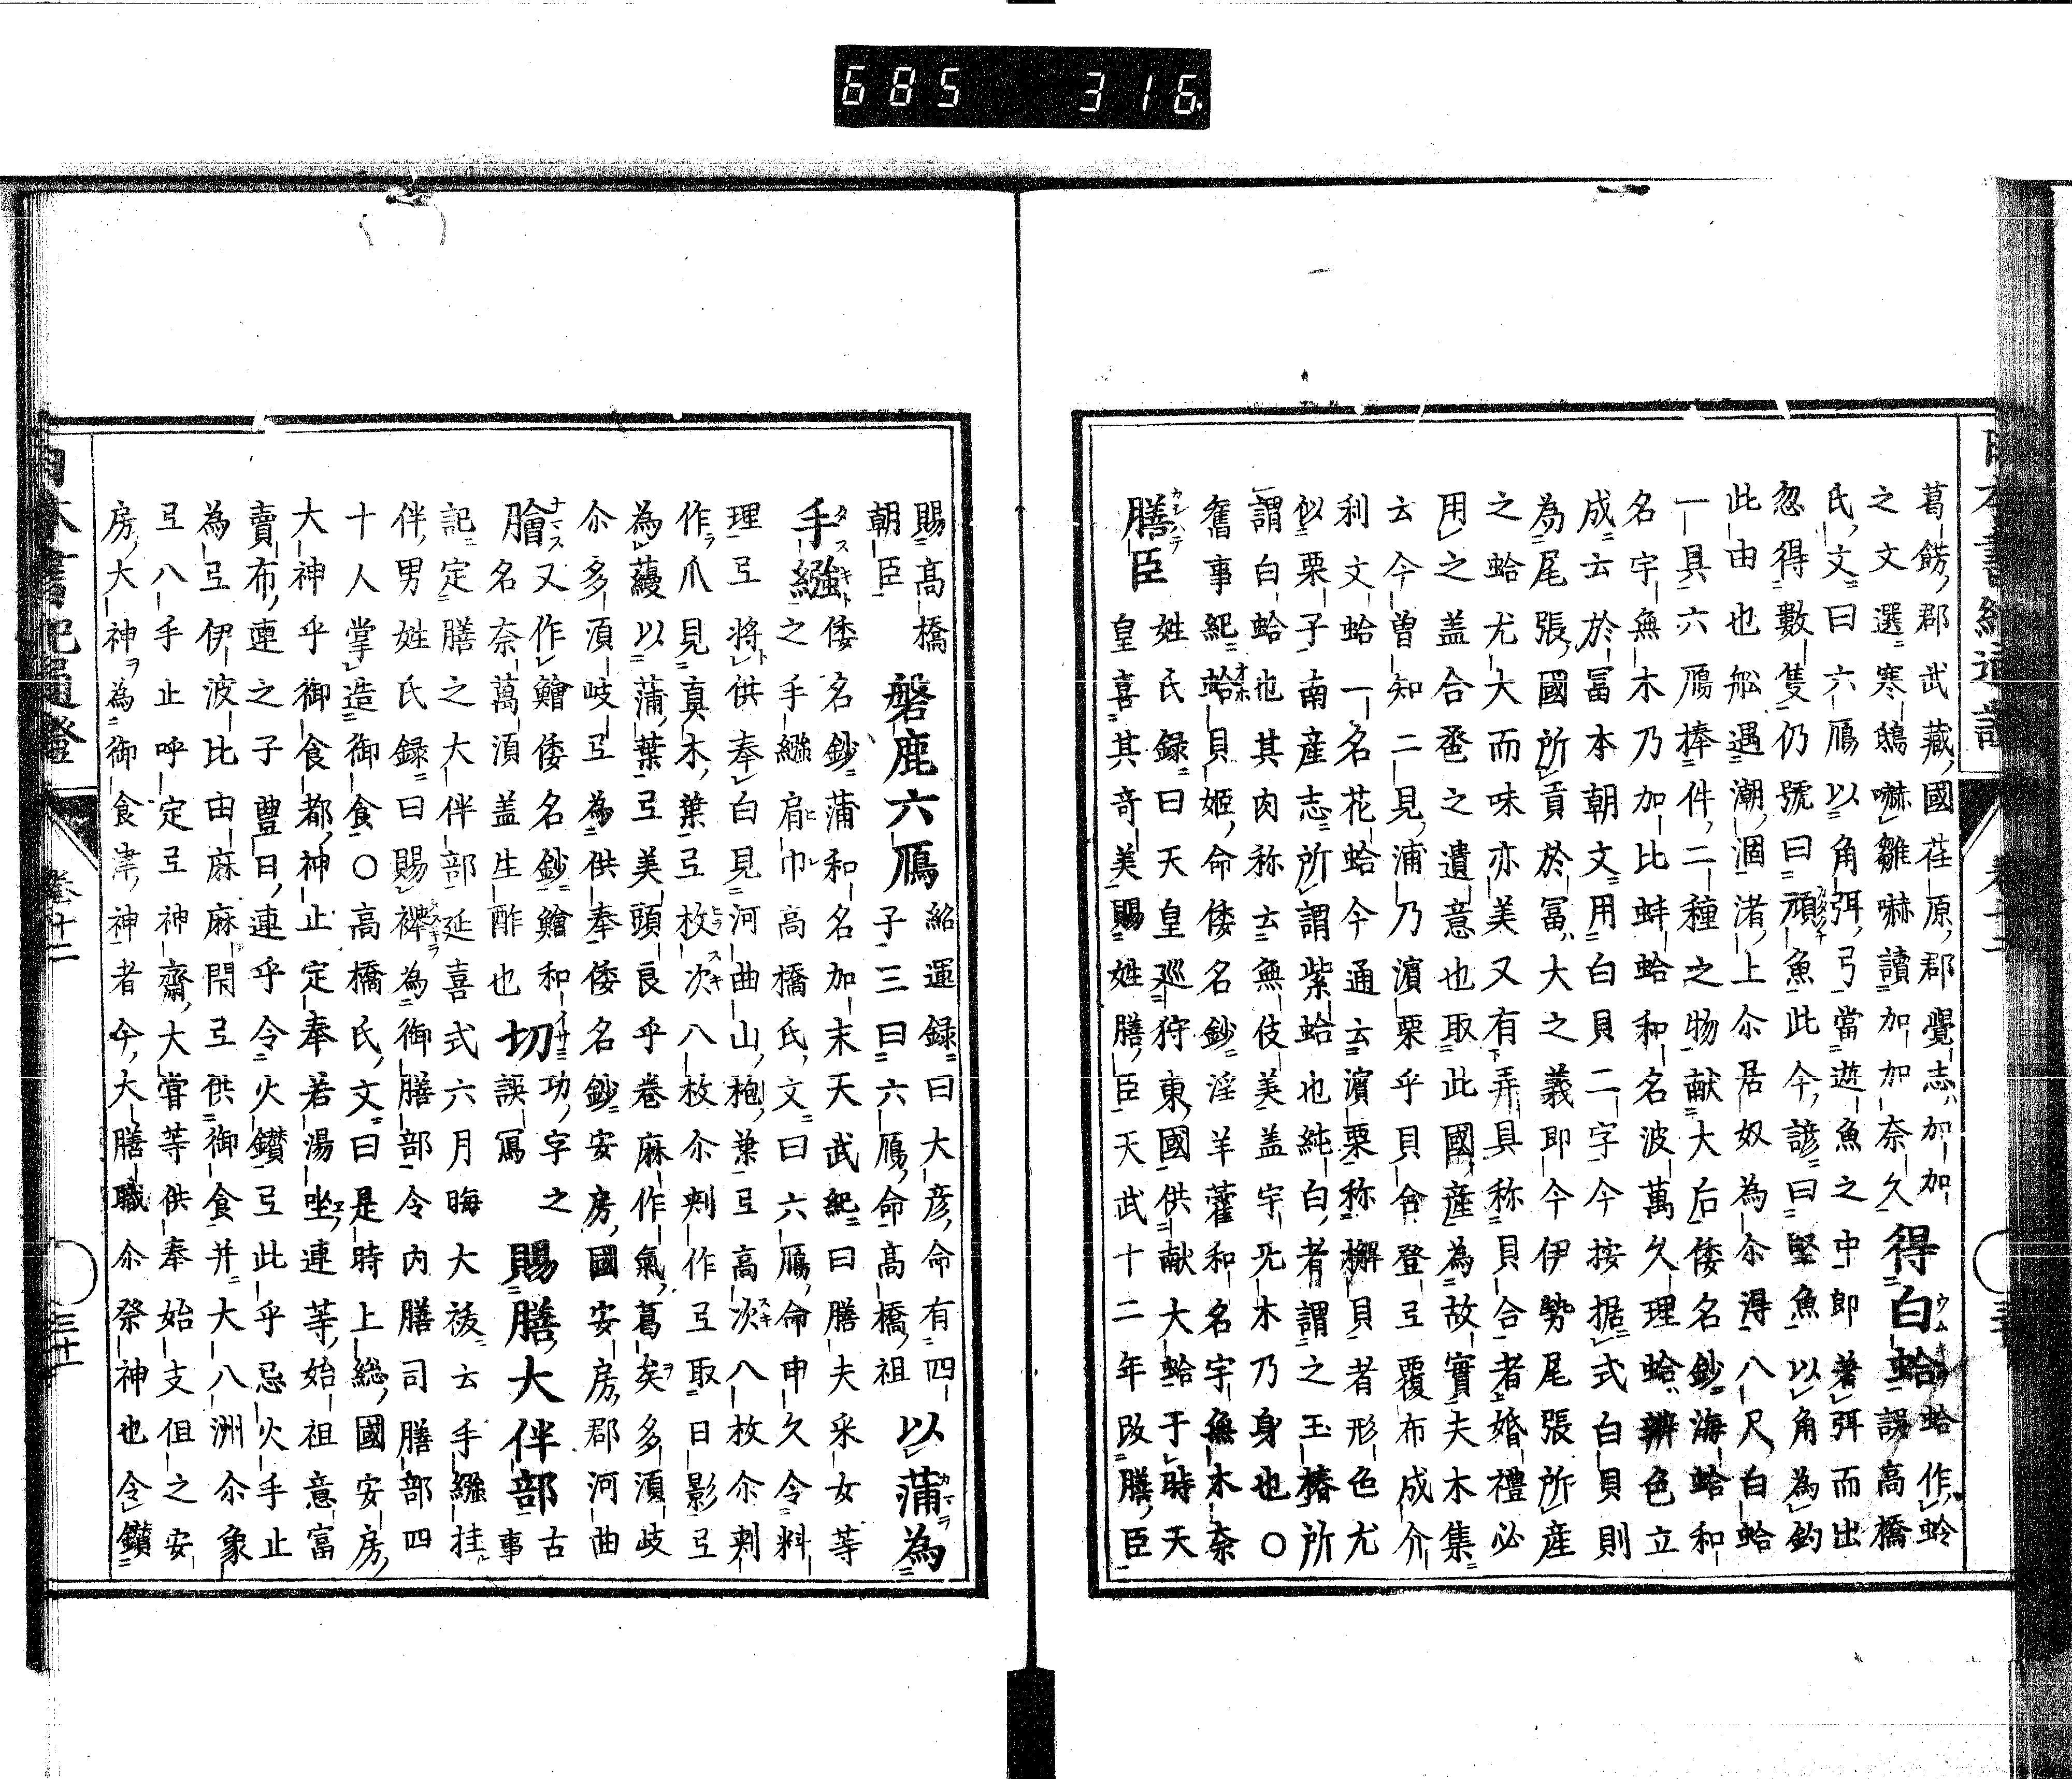 685 316
葛餝郡武藏國荏原郡覺志加加
之文選寒鴟嚇雛嚇讀加加奈久 得白蛤 蛤作蛉
氏文曰六鴈以角弭弓當遊魚之中即著弭而出 誤高橋
忽得數隻仍號曰頑魚此今諺曰堅魚以角為釣
此由也舩遇潮涸渚上尒居奴為尒得八尺白蛤
一具六鴈捧件二種之物献大后倭名鈔海蛤和
名宇無木乃加比蚌蛤和名波萬久理蛤辨色立
成云於冨本朝文用白貝二字今按据式白貝則
為尾張國所貢於冨大之義即今伊勢尾張所産
之蛤尤大而味亦美又有弄具称貝合者婚禮必
用之盖合巹之遺意也取此國産為故實夫木集
云今曽知二見浦乃濵栗乎貝合登弖覆布成介
利文蛤一名花蛤今通云濵栗称櫸貝者形色尤
似栗子南産志所謂紫蛤也純白者謂之玉椿所
謂白蛤也其肉称云無伎美盖宇兂木乃身也〇
舊事紀蛤貝姬命倭名鈔淫羊藿和名宇無木奈
膳臣 姓氏録曰天皇巡狩東國供献大蛤于時天
皇喜其竒美賜姓膳臣天武十二年改膳臣
賜高橋
朝臣 磐鹿六鴈 紹運録曰大彦命有四
子三曰六鴈命高橋祖 以蒲為
手繦 倭名鈔蒲和名加末天武紀曰膳夫采女等
之手繦肩巾高橋氏文曰六鴈命申久令料
理弖将供奉白見河曲山梔葉弖高次八枚尒刺
作爪見真木葉弖枚次八枚尒刾作弖取日影弖
為蘰以蒲葉弖美頭良乎巻麻作氣葛矣多湏岐
尒多湏岐弖為供奉倭名鈔安房國安房郡河曲
膾 又作鱠倭名鈔鱠和
名奈萬湏盖生酢也 切 功字之
誤寫 賜膳大伴部 古
事
記定膳之大伴部延喜式六月晦大祓云手繦挂
伴男姓氏録曰賜裨為御膳部令内膳司膳部四
十人掌造御食〇高橋氏文曰是時上総國安房
大神乎御食都神止定奉若湯坐連等始祖意富
賣布連之子豊日連乎令火鑚弖此乎忌火手止
為弖伊波比由麻麻閇弖供御食并大八洲尒象
弖八手止呼定弖神齋大嘗等供奉始支但之安
房大神ヲ為御食津神者今大膳職尒祭神也令鑚